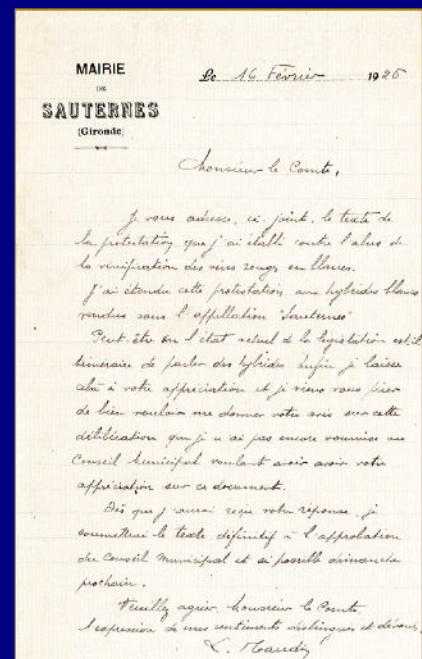 MAIRIE
DE
SAUTERNES
(Gironde)
Le 16 Février 1926
Monsieur le Comte,
Je vous adresse, ci joint, le texte de
la protestation que j'ai établi contre l'abus de
la vinification des vins rouges en blancs.
J'ai étendu cette protestation aux hybrides blancs
vendus sous l'appellation "Sauternes"
Peut-être en l'état actuel de la législation est-il
téméraire de parler des hybrides enfin je laisse
cela à votre appréciation et je viens vous prier
de bien vouloir me donner votre avis sur cette
délibération que je n'ai pas encore soumise au
Conseil Municipal voulant avoir avoir votre
appréciation sur ce document.
Dès que j'aurai reçu votre réponse, je
soumettrai le texte définitif à l'approbation
du Conseil Municipal et si possible dimanche
prochain.
Veuillez agréer, Monsieur le Comte,
l'expression de mes sentiments distingués et dévoués.